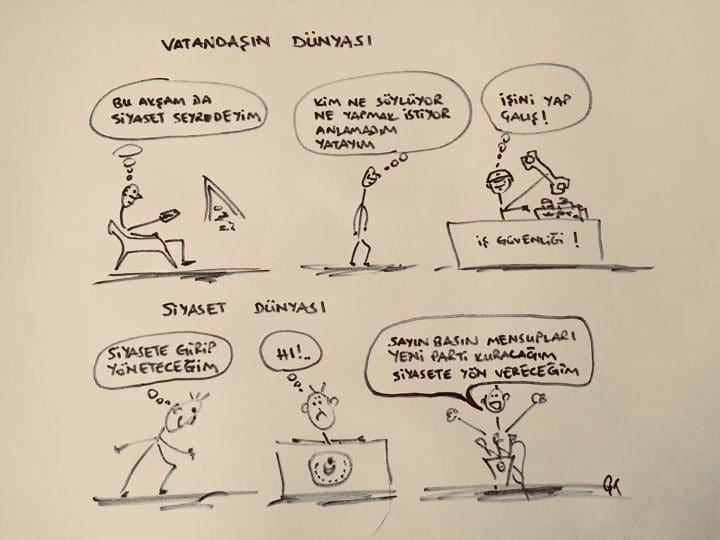 VATANDAŞIN DÜNYASI
BU AKŞAM DA
SİYASET SEYREDEYİM
KİM NE SÖYLÜYOR
NE YAPMAK İSTİYOR
ANLAMADIM
YATAYIM
İŞİNİ YAP
ÇALIŞ!
İŞ GÜVENLİĞİ !
SİYASET DÜNYASI
SİYASETE GİRİP
YÖNETECEĞİM
HI!..
SAYIN BASIN MENSUPLARI
YENİ PARTİ KURACAĞIM
SİYASETE YÖN VERECEĞİM